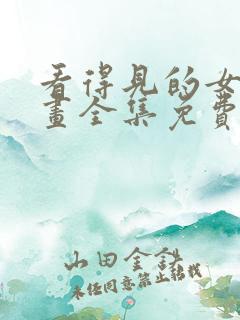 看得见的女
畫全集免费
山田金鉄
未经同意禁止转载